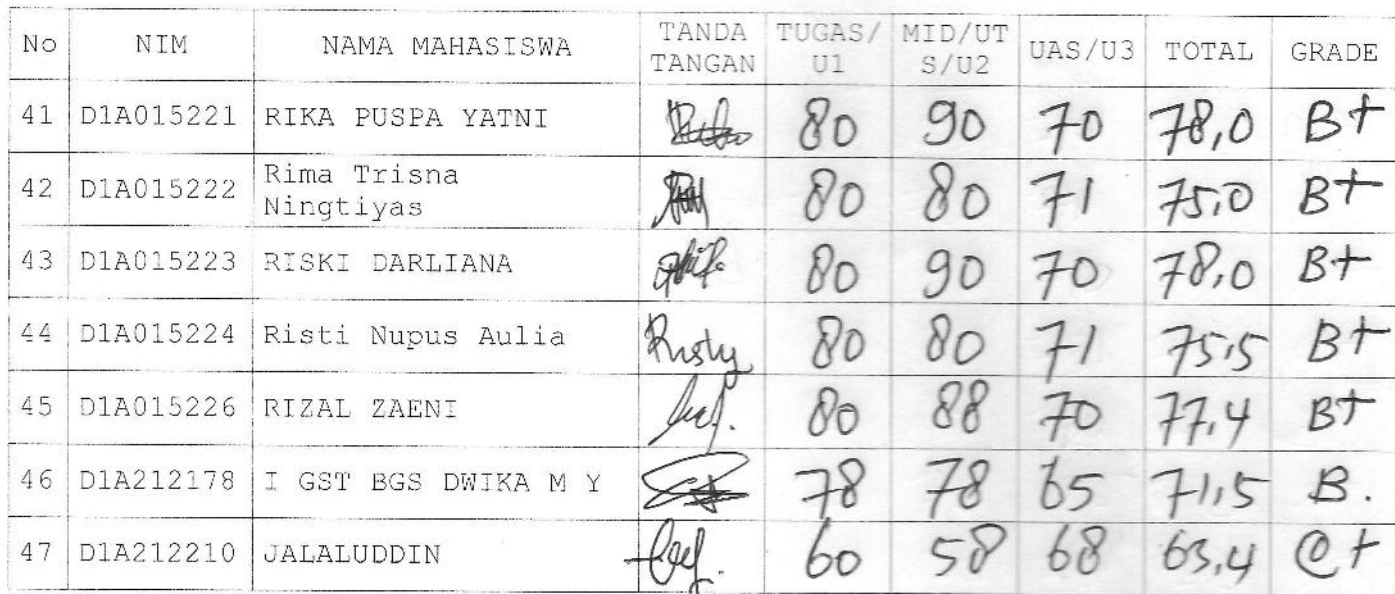 No NIM NAMA MAHASISWA TANDA TANGAN TUGAS/ U1 MID/UT S/U2 UAS/U3 TOTAL GRADE
41 D1A015221 RIKA PUSPA YATNI 80 90 70 78,0 B+
42 D1A015222 Rima Trisna Ningtiyas 80 80 71 75,0 B+
43 D1A015223 RISKI DARLIANA 80 90 70 78,0 B+
44 D1A015224 Risti Nupus Aulia Risty 80 80 71 75,5 B+
45 D1A015226 RIZAL ZAENI 80 88 70 77,4 B+
46 D1A212178 I GST BGS DWIKA M Y 78 78 65 71,5 B.
47 D1A212210 JALALUDDIN 60 58 68 63,4 C+